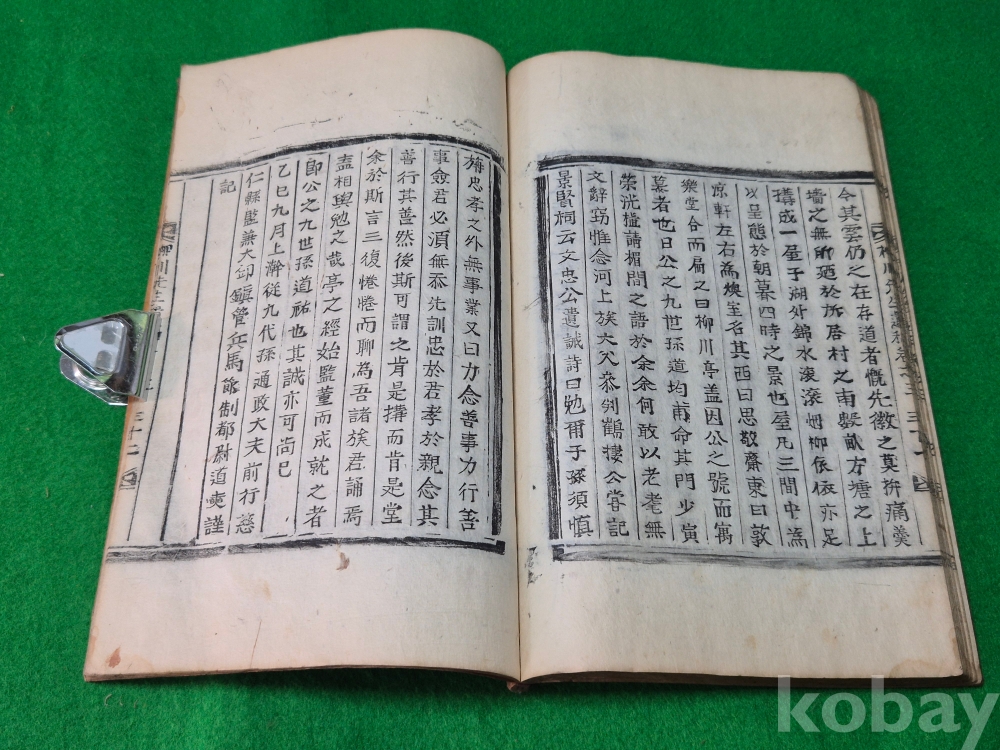 今其雲仍之在存道者慨先徽之莫拚痛羹
墻之無所廼於所居村之南數畝方塘之上
搆成一屋子湖外錦水滾滾姆柳依依亦足
以呈態於朝暮四時之景也屋凡三間中為
凉軒左右為燠室名其西曰思敬齋東曰敦
樂堂合而扁之曰柳川亭盖因公之號而寓
慕者也日公之九世孫道均甫命其門少寅
榮洸搤請楣間之語於余余何敢以老耄無
文辭窃惟念河上族大父叅判鶴棲公甞記
景賢祠云文忠公遺誡詩曰勉爾子孫須慎
旃忠孝之外無事業又曰力念善事力行善
事僉君必須無忝先訓忠於君孝於親念其
善行其善然後斯可謂之肯是搆而肯是堂
余於斯言三復惓惓而聊為吾諸族君誦焉
盍相與勉之哉亭之經始監董而成就之者
卽公之九世孫道祐也其誠亦可尚已
乙巳九月上澣從九代孫通政大夫前行慈
仁縣監兼大邱鎭管兵馬節制都尉道奭謹
記
三十二
kobay